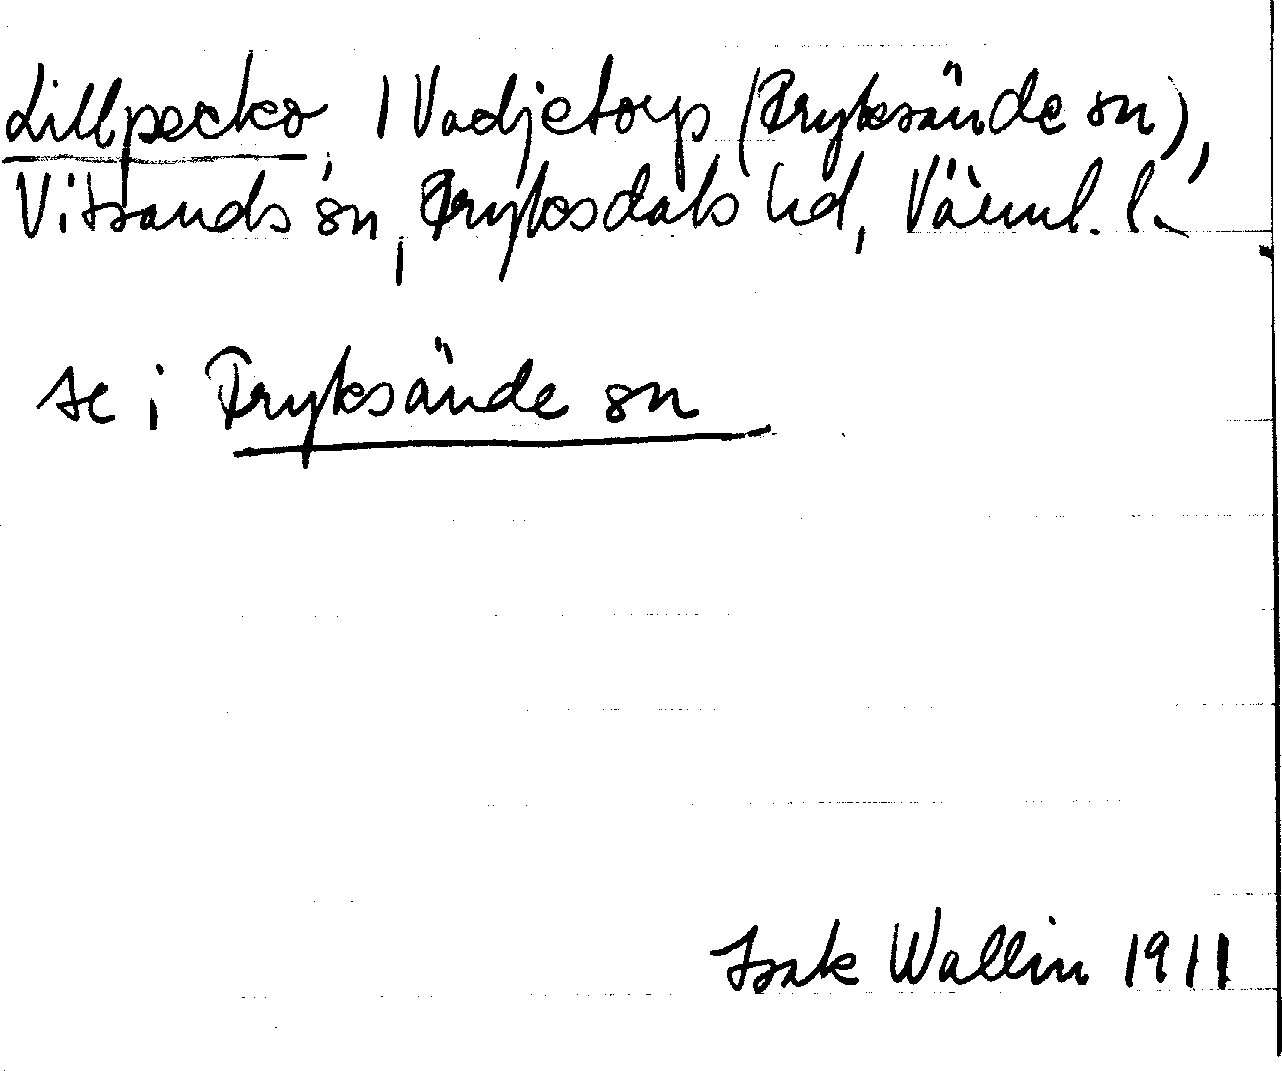 Lillpecko, i Vadjetorp (Fryksände sn),
Vitsands sn, Fryksdals hd, Värml. l.
se i Fryksände sn
Isak Wallin 1911